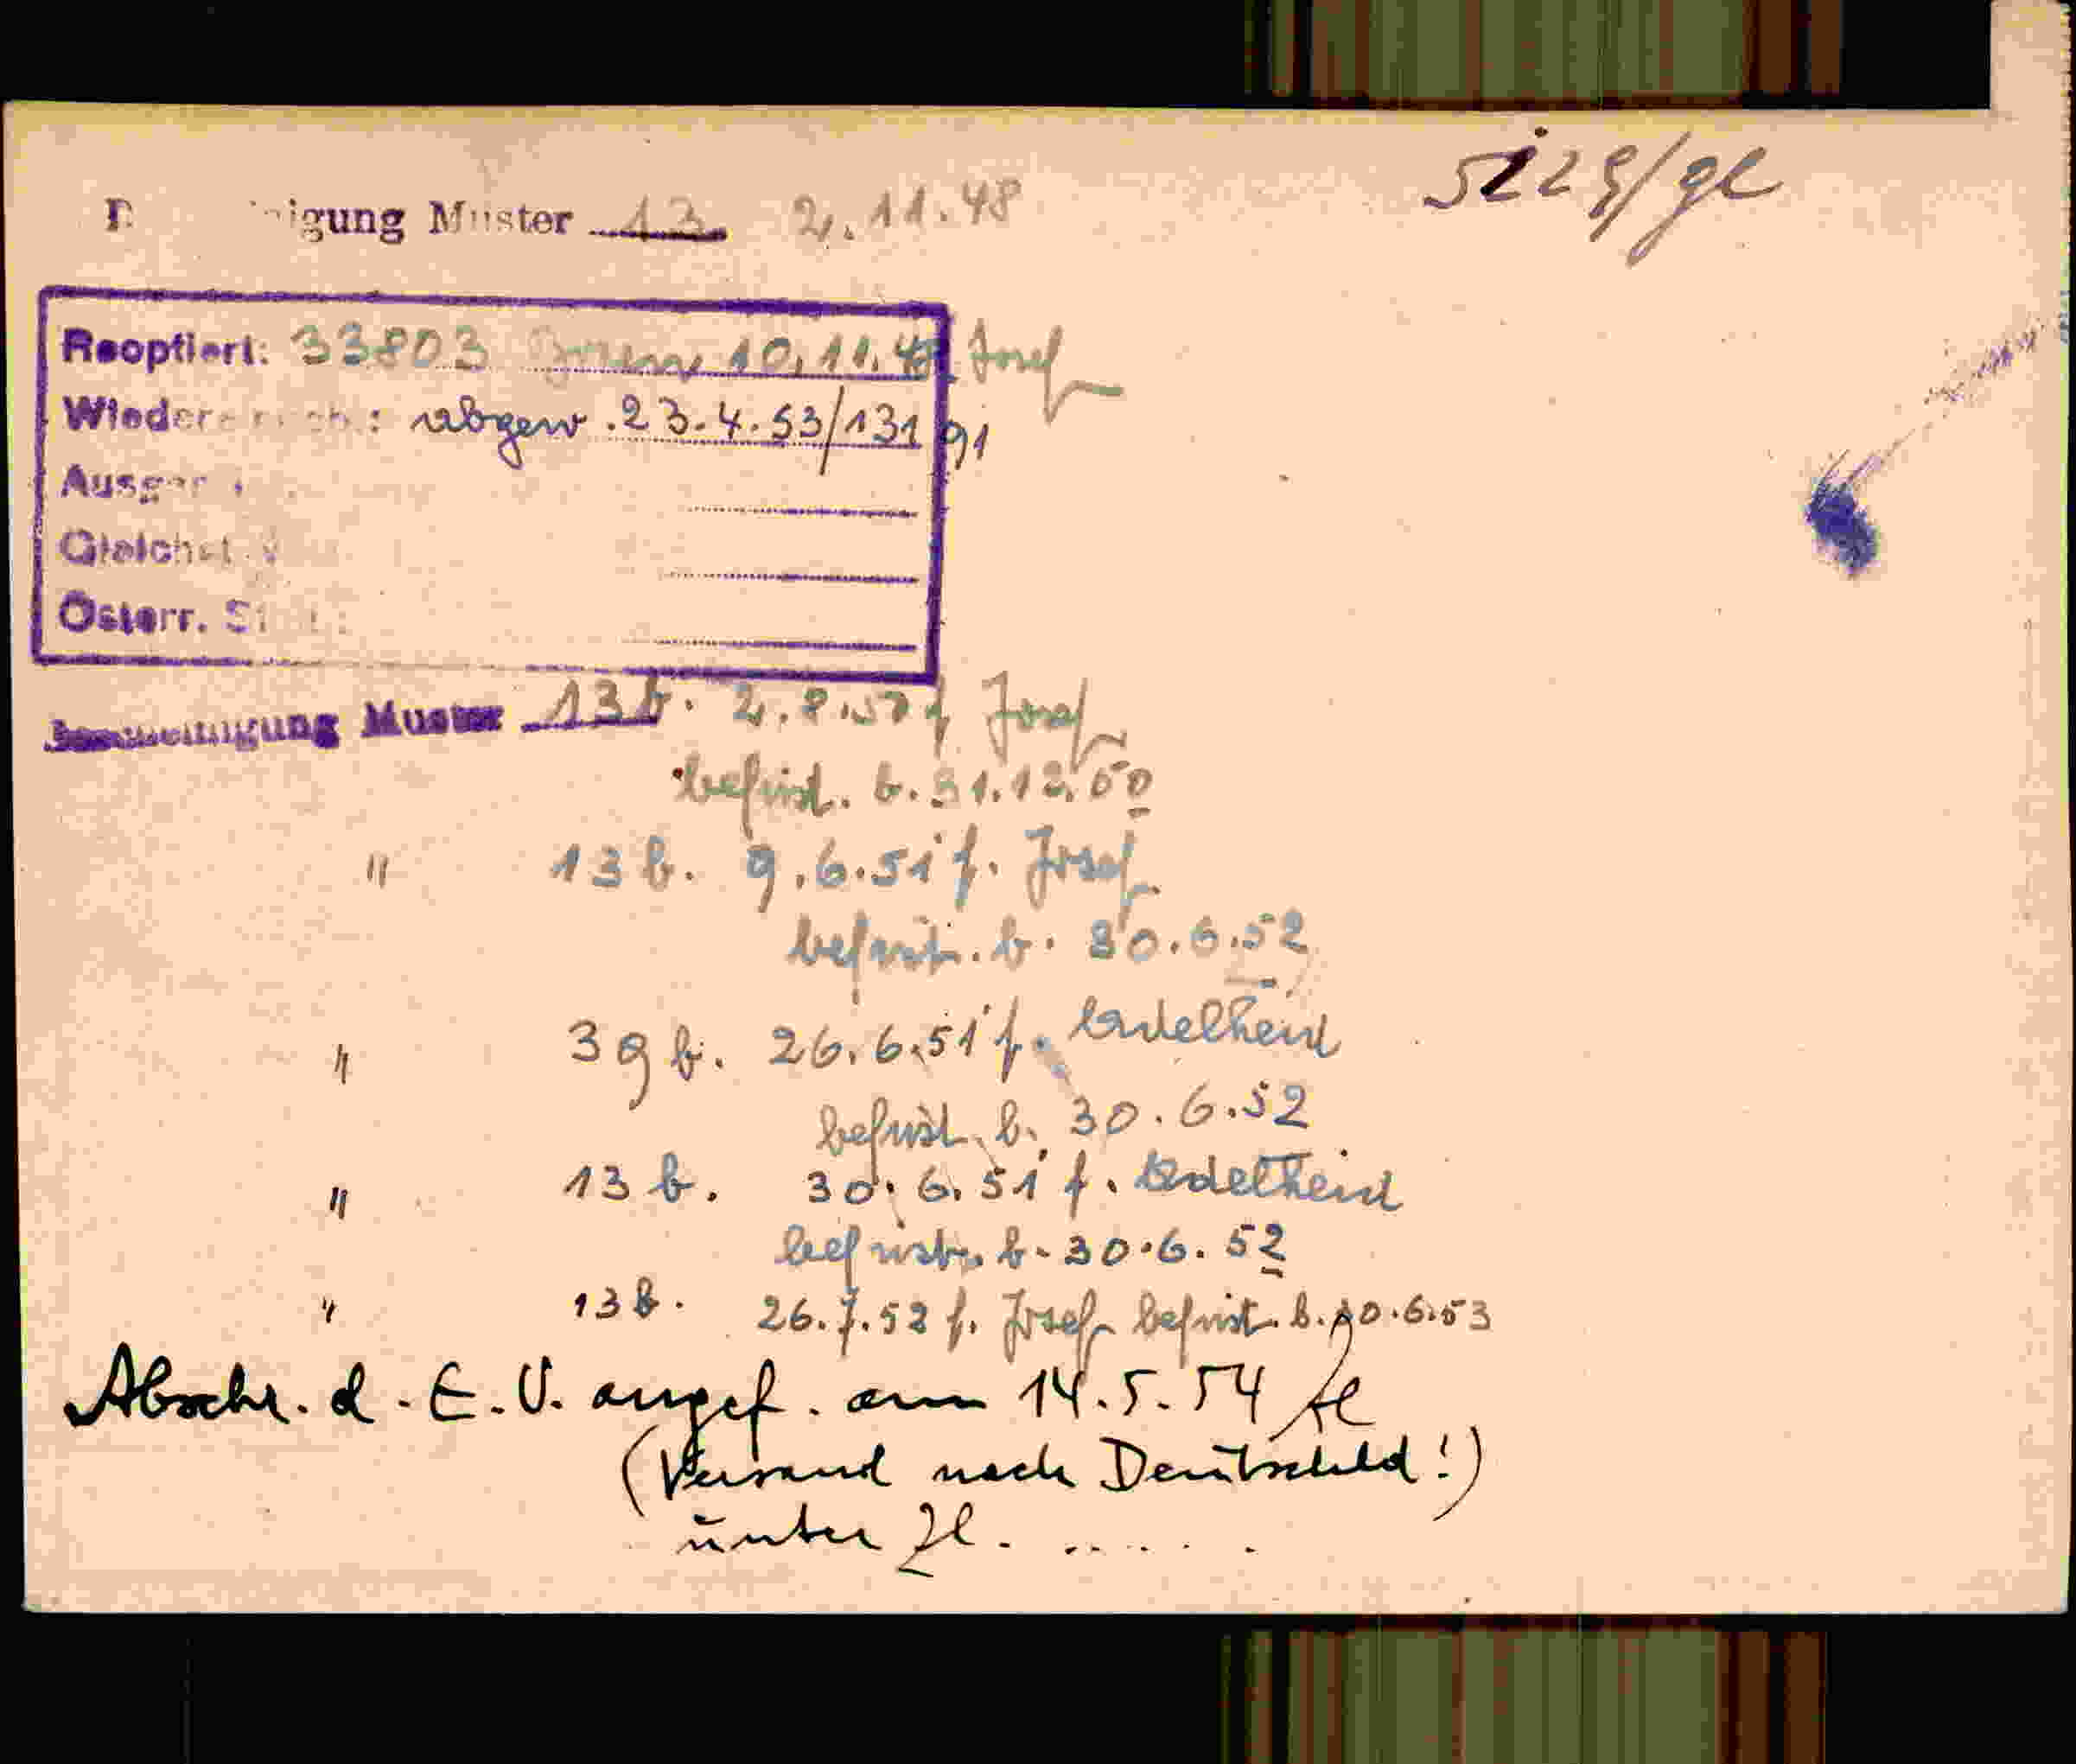 5229/gl
Bescheinigung Muster 13 2.11.48
Reoptiert: 33803 Bozen 10.11.48 Josef
Wiedererwerb: abgew. 23.4.53/131 91
Ausger
Gleichst
Österr. St
Bescheinigung Muster 13b. 2.8.50 f Josef
befrist. b. 31.12.50
" 13 b. 9.6.51 f. Josef
befrist. b. 30.6.52
" 39 b. 26.6.51 f. Adelheid
befrist. b. 30.6.52
" 13 b. 30.6.51 f. Adelheid
befrist. b. 30.6.52
" 13 b. 26.7.52 f. Josef befrist. b. 30.6.53
Abschr. d. E.U. angef. am 14.5.54
(Versand nach Deutschld!)
unter Zl. ......